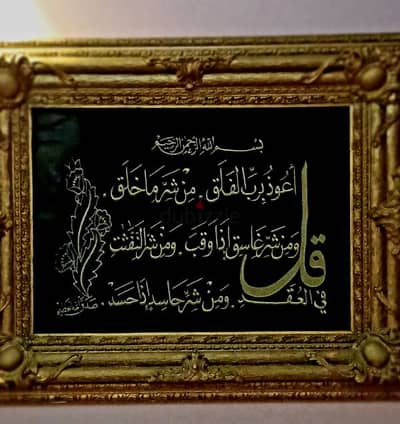 بسم الله الرحمن الرحيم
قل أعوذ برب الفلق . من شر ما خلق .
ومن شر غاسق إذا وقب . ومن شر النفثت
في العقد . ومن شر حاسد إذا حسد .
صدق الله العظيم
dubizzle